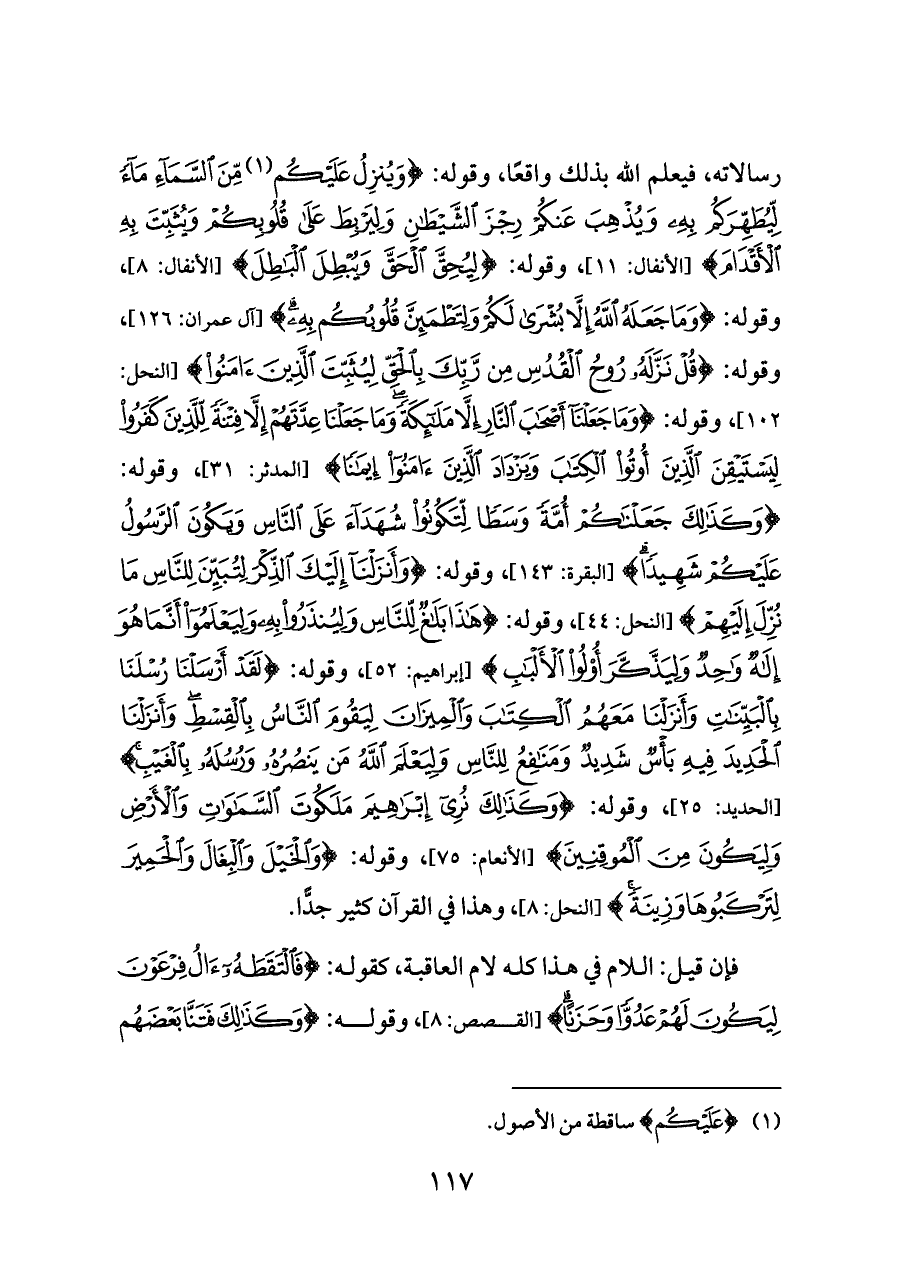 رسالاته، فيعلم الله بذلك واقعًا، وقوله: ﴿وَيُنزِلُ عَلَيْكُم(١) مِّنَ ٱلسَّمَآءِ مَآءً
لِّيُطَهِّرَكُم بِهِۦ وَيُذْهِبَ عَنكُمْ رِجْزَ ٱلشَّيْطَانِ وَلِيَرْبِطَ عَلَىٰ قُلُوبِكُمْ وَيُثَبِّتَ بِهِ
ٱلْأَقْدَامَ﴾ [الأنفال: ١١]، وقوله: ﴿لِيُحِقَّ ٱلْحَقَّ وَيُبْطِلَ ٱلْبَاطِلَ﴾ [الأنفال: ٨]،
وقوله: ﴿وَمَا جَعَلَهُ ٱللَّهُ إِلَّا بُشْرَىٰ لَكُمْ وَلِتَطْمَئِنَّ قُلُوبُكُم بِهِۦۗ﴾ [آل عمران: ١٢٦]،
وقوله: ﴿قُلْ نَزَّلَهُۥ رُوحُ ٱلْقُدُسِ مِن رَّبِّكَ بِٱلْحَقِّ لِيُثَبِّتَ ٱلَّذِينَ ءَامَنُوا۟﴾ [النحل:
١٠٢]، وقوله: ﴿وَمَا جَعَلْنَآ أَصْحَٰبَ ٱلنَّارِ إِلَّا مَلَٰٓئِكَةًۖ وَمَا جَعَلْنَا عِدَّتَهُمْ إِلَّا فِتْنَةً لِّلَّذِينَ كَفَرُوا۟
لِيَسْتَيْقِنَ ٱلَّذِينَ أُوتُوا۟ ٱلْكِتَٰبَ وَيَزْدَادَ ٱلَّذِينَ ءَامَنُوٓا۟ إِيمَٰنًا﴾ [المدثر: ٣١]، وقوله:
﴿وَكَذَٰلِكَ جَعَلْنَٰكُمْ أُمَّةً وَسَطًا لِّتَكُونُوا۟ شُهَدَآءَ عَلَى ٱلنَّاسِ وَيَكُونَ ٱلرَّسُولُ
عَلَيْكُمْ شَهِيدًاۗ﴾ [البقرة: ١٤٣]، وقوله: ﴿وَأَنزَلْنَآ إِلَيْكَ ٱلذِّكْرَ لِتُبَيِّنَ لِلنَّاسِ مَا
نُزِّلَ إِلَيْهِمْ﴾ [النحل: ٤٤]، وقوله: ﴿هَٰذَا بَلَٰغٌ لِّلنَّاسِ وَلِيُنذَرُوا۟ بِهِۦ وَلِيَعْلَمُوٓا۟ أَنَّمَا هُوَ
إِلَٰهٌ وَٰحِدٌ وَلِيَذَّكَّرَ أُو۟لُوا۟ ٱلْأَلْبَٰبِ﴾ [إبراهيم: ٥٢]، وقوله: ﴿لَقَدْ أَرْسَلْنَا رُسُلَنَا
بِٱلْبَيِّنَٰتِ وَأَنزَلْنَا مَعَهُمُ ٱلْكِتَٰبَ وَٱلْمِيزَانَ لِيَقُومَ ٱلنَّاسُ بِٱلْقِسْطِۖ وَأَنزَلْنَا
ٱلْحَدِيدَ فِيهِ بَأْسٌ شَدِيدٌ وَمَنَٰفِعُ لِلنَّاسِ وَلِيَعْلَمَ ٱللَّهُ مَن يَنصُرُهُۥ وَرُسُلَهُۥ بِٱلْغَيْبِۚ﴾
[الحديد: ٢٥]، وقوله: ﴿وَكَذَٰلِكَ نُرِىٓ إِبْرَٰهِيمَ مَلَكُوتَ ٱلسَّمَٰوَٰتِ وَٱلْأَرْضِ
وَلِيَكُونَ مِنَ ٱلْمُوقِنِينَ﴾ [الأنعام: ٧٥]، وقوله: ﴿وَٱلْخَيْلَ وَٱلْبِغَالَ وَٱلْحَمِيرَ
لِتَرْكَبُوهَا وَزِينَةًۚ﴾ [النحل: ٨]، وهذا في القرآن كثير جدًّا.
فإن قيل: اللام في هذا كله لام العاقبة، كقوله: ﴿فَٱلْتَقَطَهُۥٓ ءَالُ فِرْعَوْنَ
لِيَكُونَ لَهُمْ عَدُوًّا وَحَزَنًاۗ﴾ [القصص: ٨]، وقوله: ﴿وَكَذَٰلِكَ فَتَنَّا بَعْضَهُم
(١) ﴿عَلَيْكُم﴾ ساقطة من الأصول.
١١٧